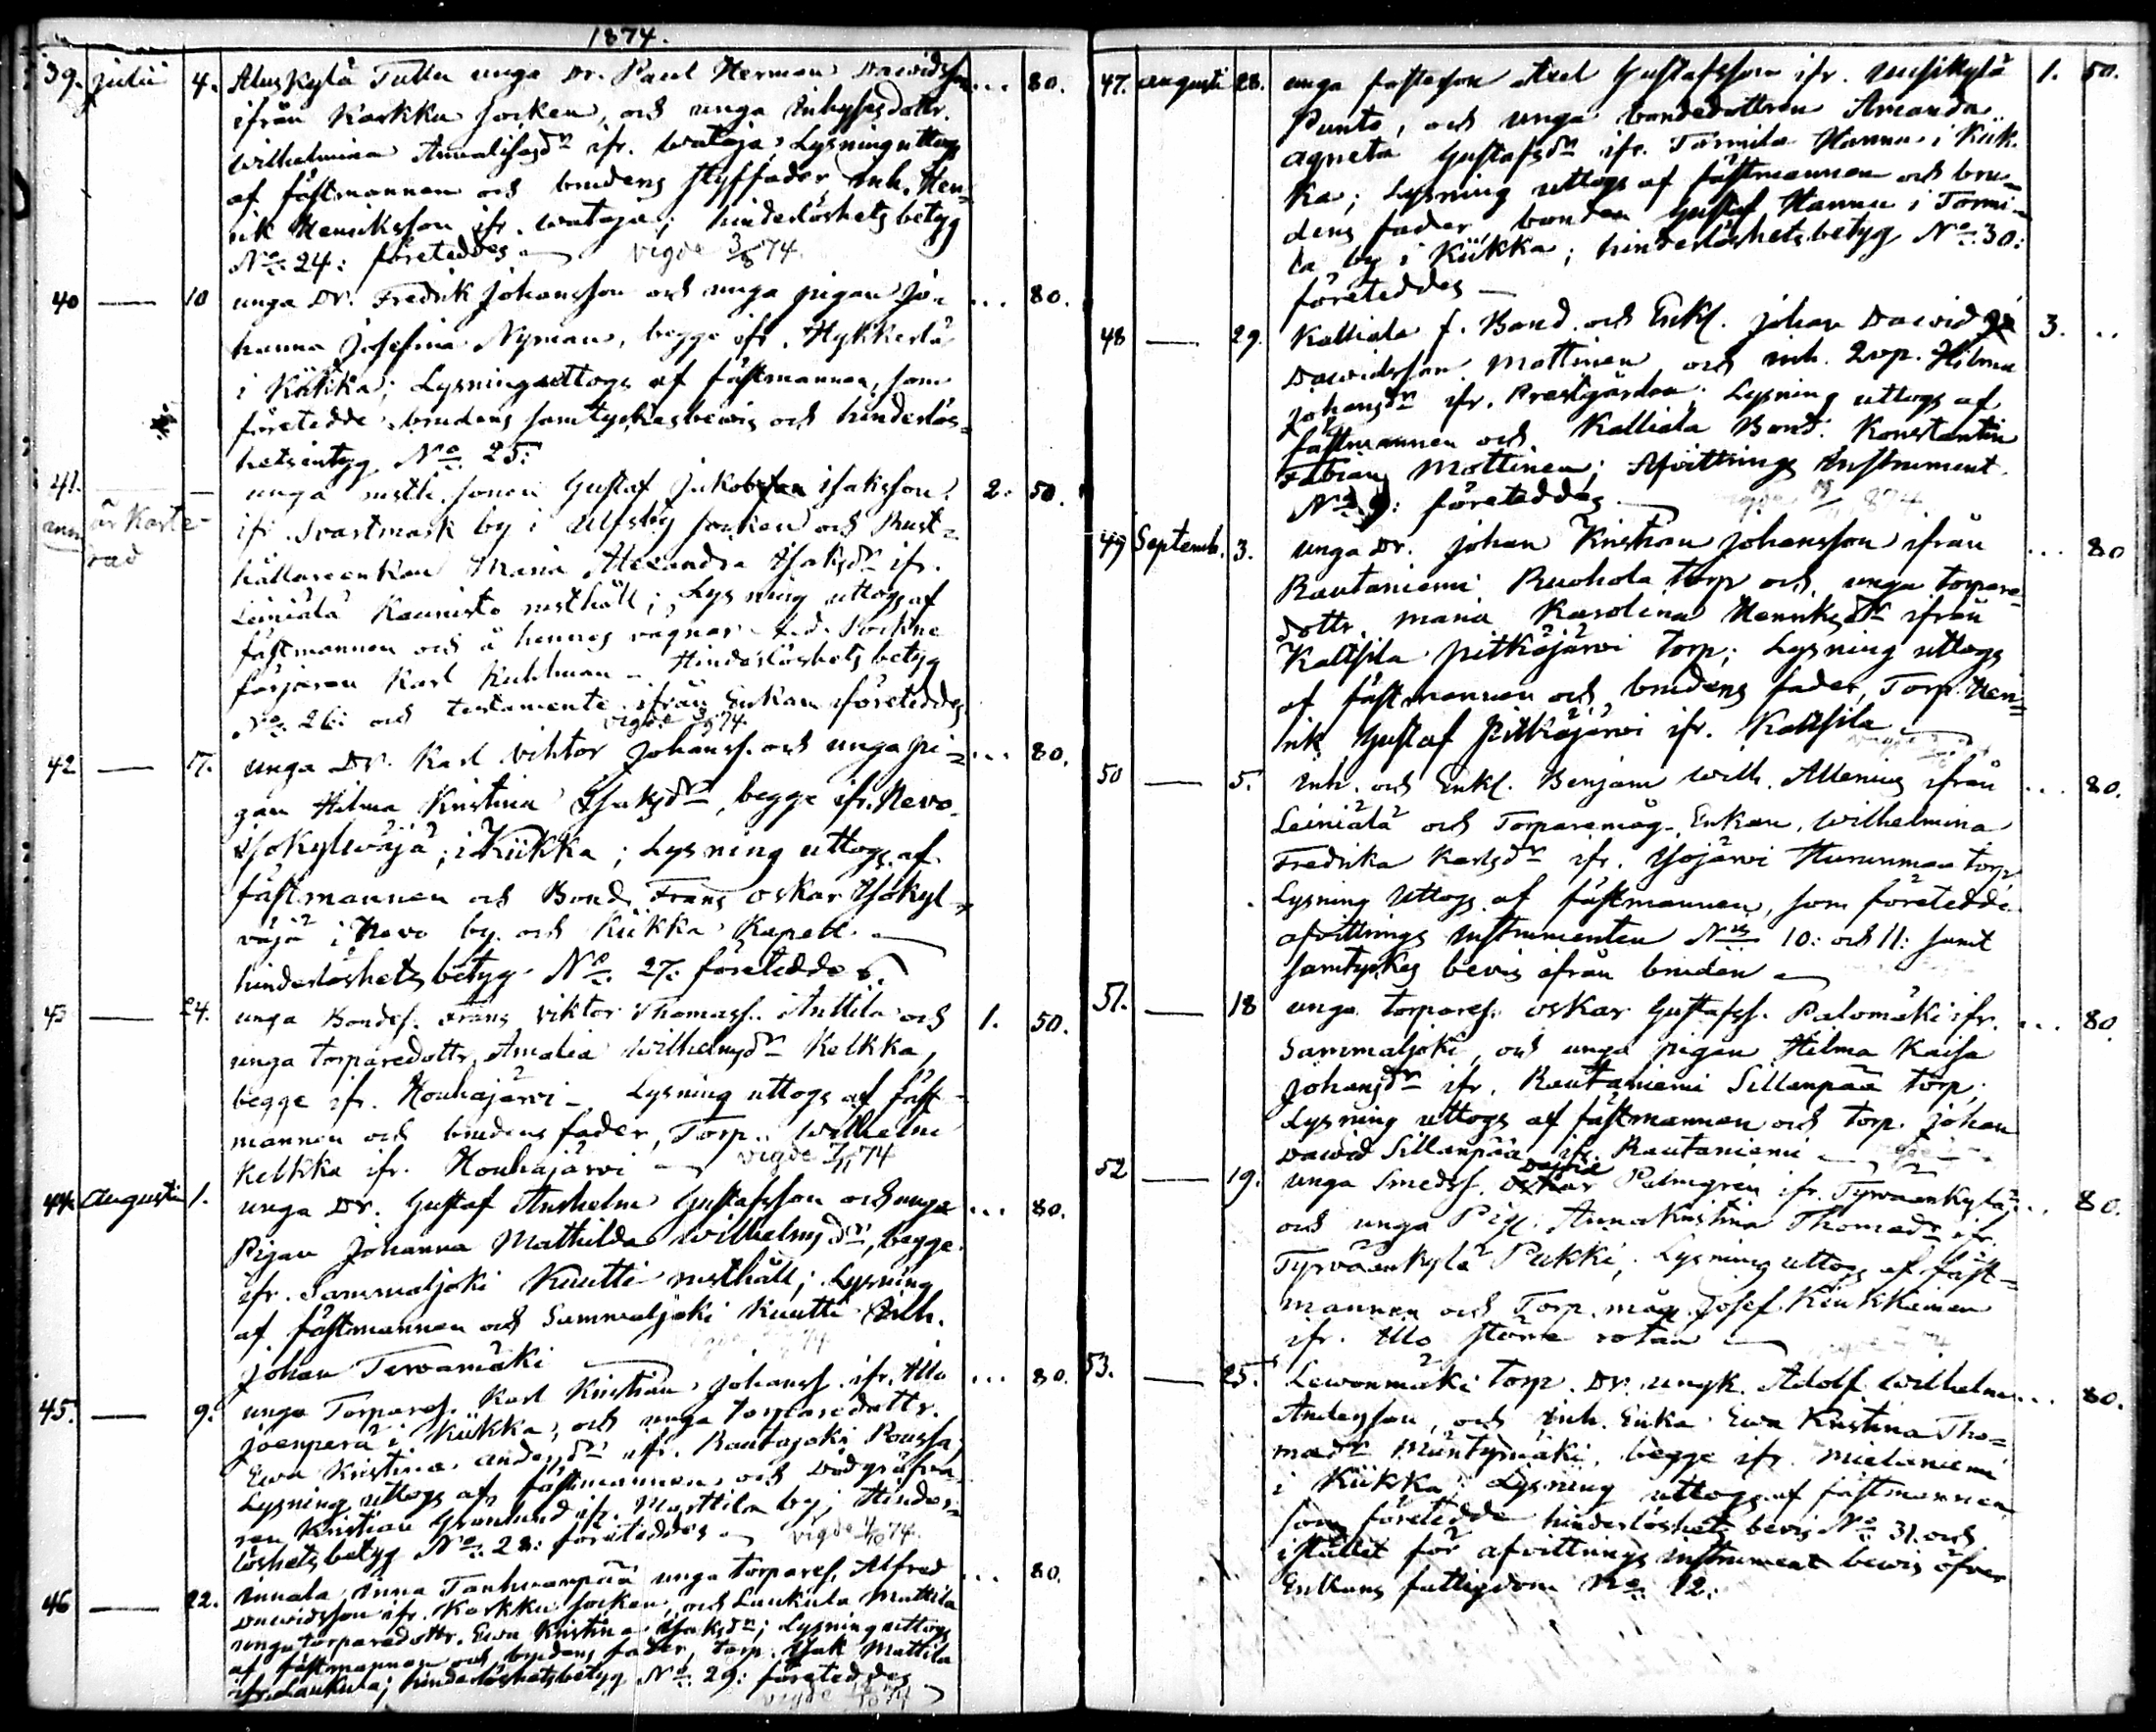 1874.
39. Julii 4. Aluskylä Tullu unga Dr. Paul Herman Davidsson ... 80.
ifrån Karkku socken, och unga Inhysesdottr.
Wilhelmina Annalisasdr ifr. Wataja; Lysning uttogs
af fästmannen och brudens styffader, Inh. Hen-
rik Henriksson ifr. Wataja; hinderlöshets betyg
No 24: företeddes — vigde 3/8 74.
40 — 10 unga Dr. Fredrik Johansson och unga pigan Jo- ... 80.
hanna Josefina Nyman, begge ifr. Hykkerlä
i Kiikka; Lysning uttogs af fästmannen, som
företedde brudens samtyckesbevis och hinderlös-
hets intyg No 25:
41. — — unga rusth. sonen Gustaf Jakobsson Isaksson 2. 50.
ifr. Svartmark by i Ulfsby socken och Rust-
hållareenkan Maria Alexandra Isaksdr ifr.
Leiniälä Kaunisto rusthåll; Lysning uttogs af
fästmannen och å hennes vägnar
färjaren Karl Kuhlman — Hinderlöshets betyg
No 26: och testamente ifrån Enkan företeddes
vigde 74
42 — 17. unga Dr. Karl Viktor Johanss. och unga pi- ... 80.
gan Hilma Kristina Isaksdr, begge ifr. Nevo
Isokylvöjä; i Kiikka; Lysning uttogs af
fästmannen och Bond. Frans Oskar Isokyl-
vöjä i Nevo by och Kiikka Kapell —
hinderlöshets betyg No 27: företeddes.
43 — 24. unga Bondes. Frans Viktor Thomass. Anttila och 1. 50.
unga torparedottr. Amalia Wilhelmsdr Kelkka,
begge ifr. Houhajärvi — Lysning uttogs af fäst-
mannen och brudens fader, Torp. Wilhelm
Kelkka ifr. Houhajärvi — vigde 7/11 74
44 Augusti 1. unga Dr. Gustaf Anshelm Gustafsson och unga ... 80.
Pigan Johanna Mathilda Wilhelmsdr, begge
ifr. Sammaljoki Kuutti rusthåll; Lysning
af fästmannen och Sammaljoki Kuutti Inh.
Johan Tervamäki
45. — 9. unga Torpares. Karl Kristian Johanss. ifr. Illo ... 80.
Joenperä i Kiikka, och unga torparedottr.
Ewa Kristina Andersdr ifr. Rautajoki Poussa;
Lysning uttogs af fästmannen och Dödgräfva-
ren Kristian Granlund ifr. Marttila by; Hinder-
löshets betyg No 28: företeddes — vigde 74.
46 — 22. Innala Anna Tanhuanpää unga torpares. Alfred ... 80.
Davidsson ifr. Karkku socken och Laukula Mattila
unga torparedottr. Ewa Kristina Isaksdr; Lysning uttogs
af fästmannen och brudens fader, torp. Isak Mattila
ifr. Laukula; hinderlöshetsbetyg No 29: företeddes
vigde 74
47. Augusti 28. unga fosterson Axel Gustafsson ifr. Uusikylä 1. 50.
Punto, och unga bondedottren Amanda
Agneta Gustafsdr ifr. Tormila Hannu i Kiik-
ka; Lysning uttogs af fästmannen och bru-
dens fader, bonden Gustaf Hannu i Tormi-
la by i Kiikka; hinderlöshets betyg No 30:
företeddes —
48 — 29. Kalliala f. Bond. och Enkl. Johan David 3. ..
Davidsson Mattinen och inh. Hilma
Johansdr ifr. Prestgården. Lysning uttogs af
fästmannen och Kalliala Bond. Konstantin
Fabian Mottinen; Afvittrings Instrument
No 9: företeddes
49 Septemb. 3. unga Dr. Johan Kristian Johansson ifrån ... 80
Rautaniemi Ruohola torp och unga torpare-
dottr. Maria Karolina Henriksdr ifrån
Kaltsila Pitkäjärvi torp; Lysning uttogs
af fästmannen och brudens fader, Torp. Hen-
rik Gustaf Pitkäjärvi ifr. Kaltsila
50 — 5. Inh. och Enkl. Benjam Wilh. Allenius ifrån ... 80.
Leiniälä och Torparemåg. Enkan Wilhelmina
Fredrika Karlsdr ifr. Isojärvi Hurunmaa torp
Lysning uttogs af fästmannen, som företedde
afvittrings Instrumenten Nis 10: och 11: samt
samtyckes bevis ifrån bruden —
51. — 18 unga torpares. Oskar Gustafss. Palomäki ifr. ... 80.
Sammaljoki, och unga pigan Hilma Kaisa
Johansdr ifr. Rautaniemi Sillanpää torp;
Lysning uttogs af fästmannen och torp. Johan
David Sillanpää ifr. Rautaniemi —
52 — 19. unga Smedss. Oskar David Palmgren ifr. Tyrväänkylä ... 80.
och unga Pig. Anna Kristina Thomasdr ifr.
Tyrväänkylä Pukki; Lysning uttogs af fäst-
mannen och Torp. måg Josef Kiukkainen
ifr. Illo större rotan —
53. — 25. Lewonmäki torp. Dr. ungk. Adolf Wilhelm ... 80.
Andersson, och inh. Enka Ewa Kristina Tho-
masdr Mäntymäki, begge ifr. Mielaniemi
i Kiikka; Lysning uttogs af fästmannen
som företedde hinderlöshets bevis No 31. och
istället för afvittrings instrument bevis öfver
Enkans fattigdom No 12.